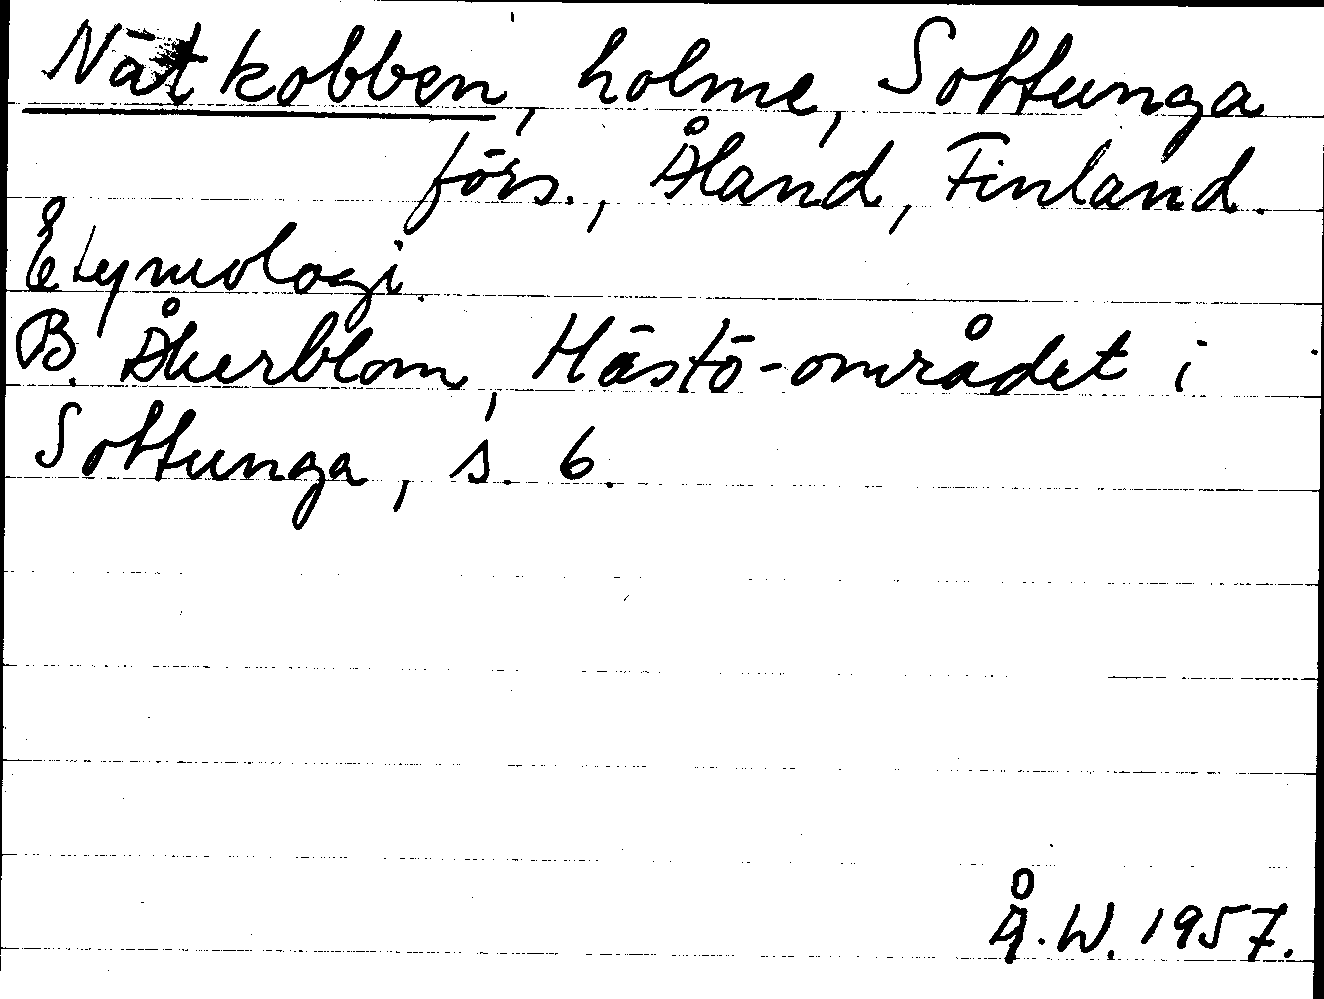 Nätkobben, holme, Sottunga
förs., Åland, Finland.
Etymologi.
B. Åkerblom, Hästö-området i
Sottunga, s. 6.
Å.W. 1957.